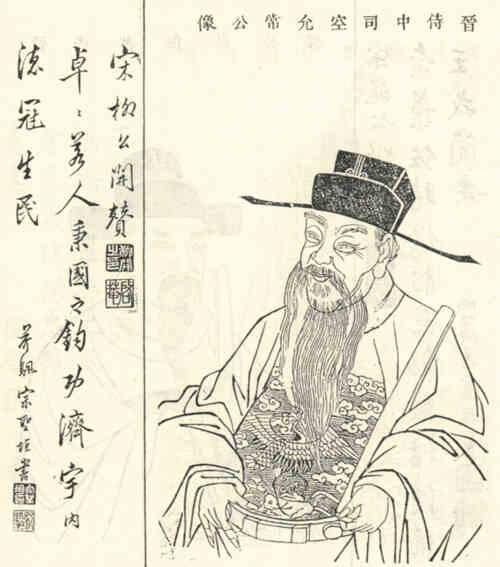 晉侍中司空允常公像
宋柳公開贊
卓〻若人秉國之鈞功濟宇內
德冠生民
芥颿宗聖垣書